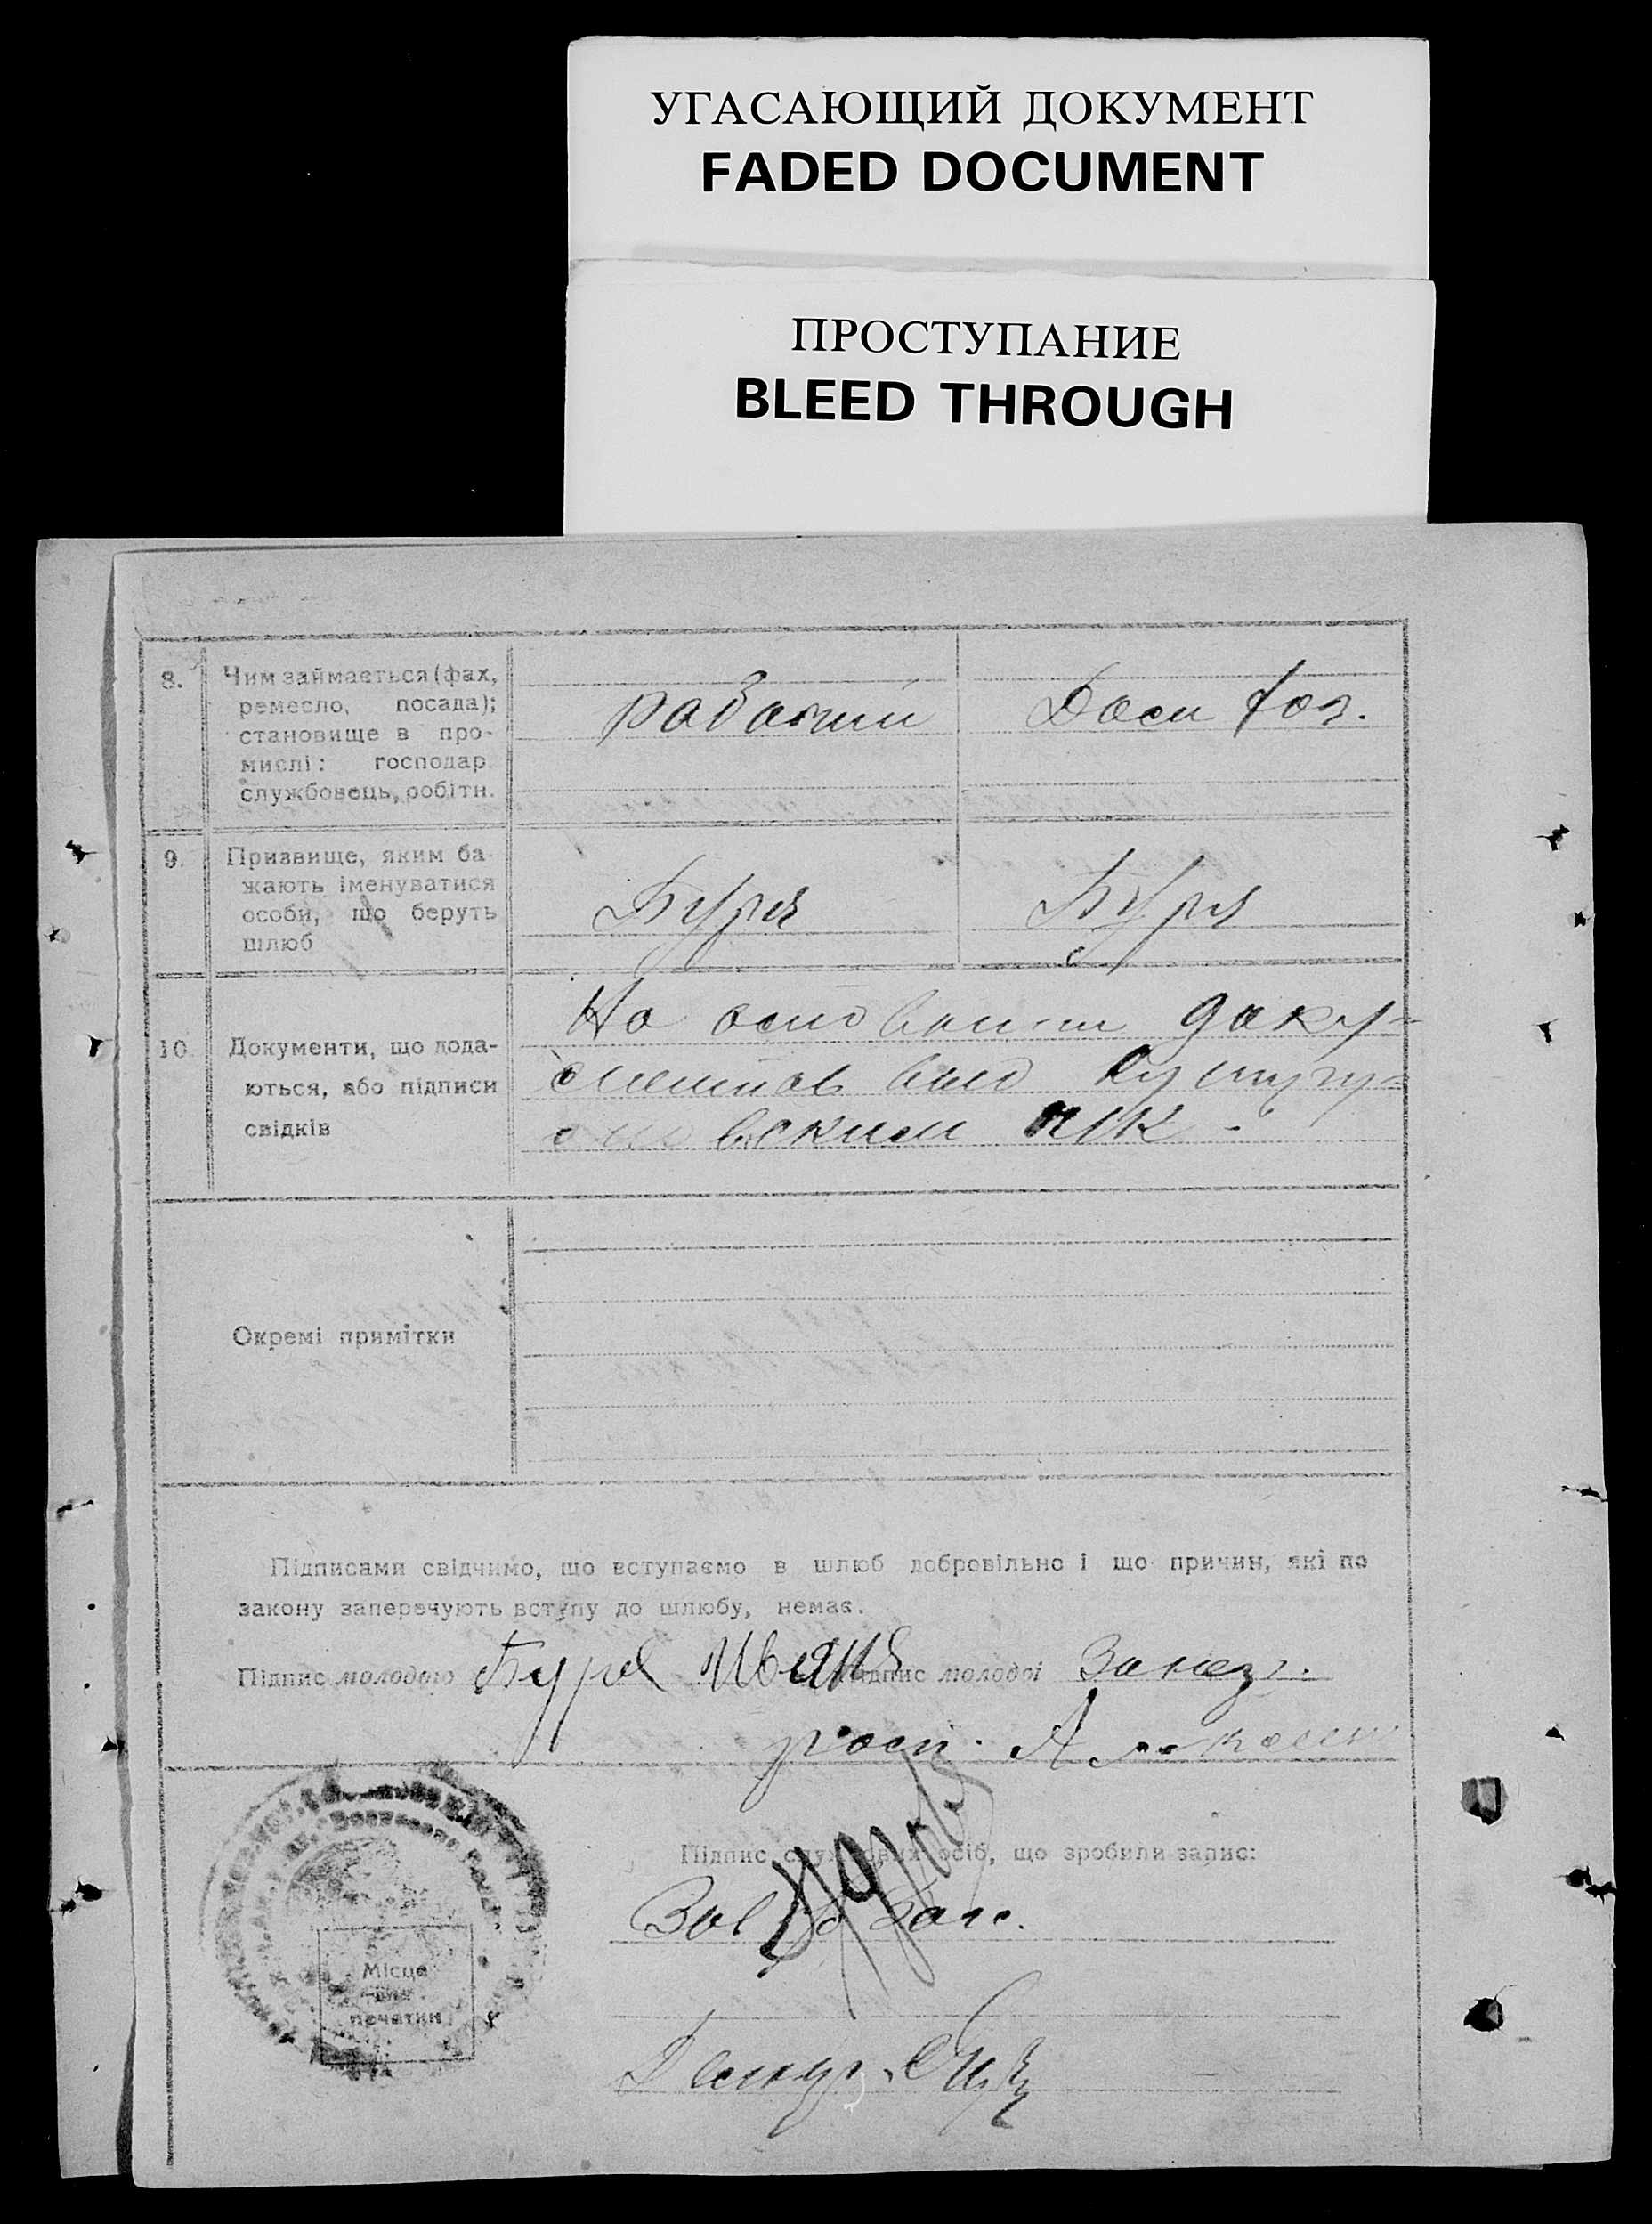 УГАСАЮЩИЙ ДОКУМЕНТ
FADED DOCUMENT
ПРОСТУПАНИЕ
BLEED THROUGH
8. Чим займається (фах,
ремесло, посада);
становище в про-
мислі: господар
службовець, робітн.
рабочий
Дом хоз.
9. Призвище, яким ба-
жають іменуватися
особи, що беруть
шлюб
Буря
Буря
10. Документи, що дода-
ються, або підписи
свідків
На основании доку-
ментов
Окремі примітки
Підписами свідчимо, що вступаємо в шлюб добровільно і що причин, які по
закону заперечують вступу до шлюбу, немає.
Підпис молодого Буря Иван Підпис молодої За негр.
росп.
Підпис службових осіб, що зробили запис:
Зав
Місце
для
печатки